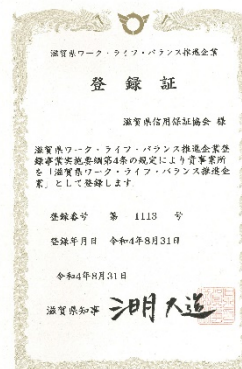 滋賀県ワーク・ライフ・バランス推進企業
登録証
滋賀県信用保証協会 様
滋賀県ワーク・ライフ・バランス推進企業登
録事業実施要綱第4条の規定により貴事業所
を「滋賀県ワーク・ライフ・バランス推進企
業」として登録します
登録番号 第 1113 号
登録年月日 令和4年8月31日
令和4年8月31日
滋賀県知事 三日月大造